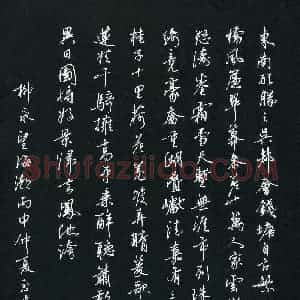 東南形勝三吳都會錢塘自古繁
橋風簾翠幕參差十萬人家雲
怒濤卷霜雪天塹無涯市列珠
綺競豪奢重湖疊巘清嘉有
桂子十里荷花羌管弄晴菱歌
蓮娃千騎擁高牙乘醉聽簫鼓
異日圖將好景歸去鳳池誇
柳永望海潮丙申仲夏